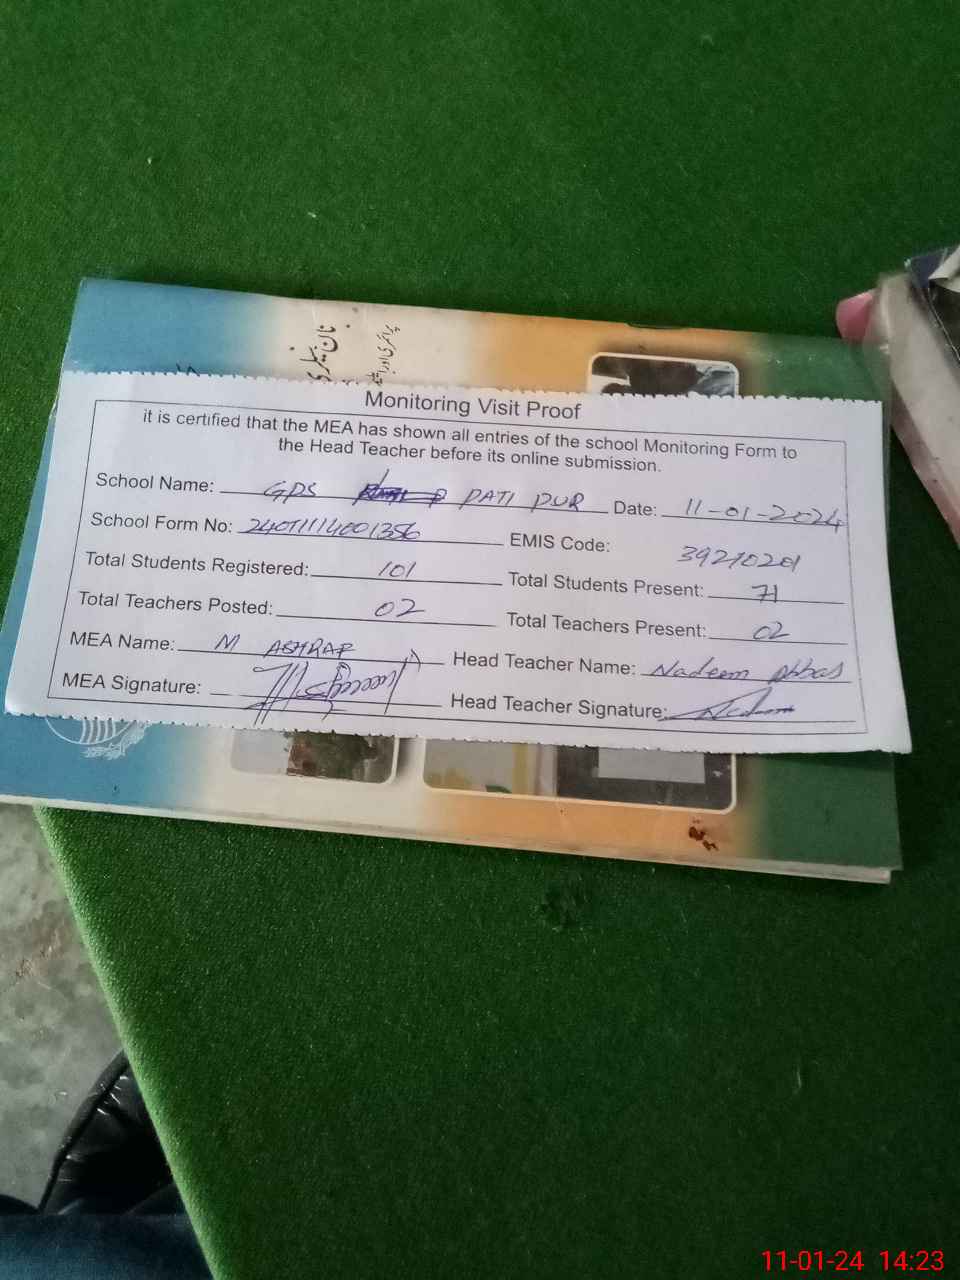 نان سیلری
پرائمری اور
Monitoring Visit Proof
it is certified that the MEA has shown all entries of the school Monitoring Form to
the Head Teacher before its online submission.
School Name: GPS PATI PUR Date: 11-01-2024
School Form No: EMIS Code: 39210201
Total Students Registered: 101 Total Students Present: 71
Total Teachers Posted: 02 Total Teachers Present: 02
MEA Name: M ASHRAF Head Teacher Name: Nadeem Abbas
MEA Signature: Head Teacher Signature: Nadeem
11-01-24 14:23